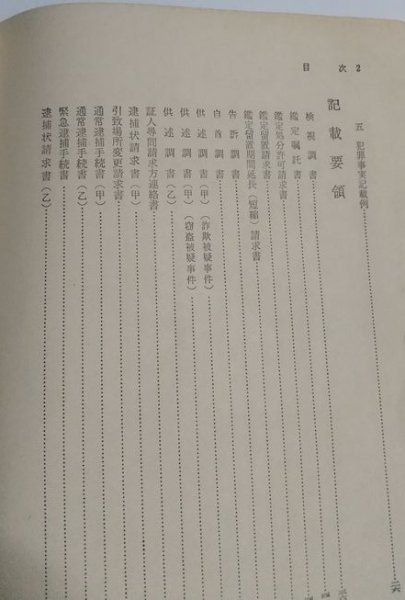 目 次 2
五 犯罪事実記載例
記載要領
検視調書
鑑定嘱託書
鑑定処分許可請求書
鑑定留置請求書
鑑定留置期間延長（短縮）請求書
告訴調書
自首調書
供述調書（甲）（詐欺被疑事件）
供述調書（甲）（窃盗被疑事件）
供述調書（乙）
証人尋問請求方連絡書
逮捕状請求書（甲）
引致場所変更請求書
通常逮捕手続書（甲）
通常逮捕手続書（乙）
緊急逮捕手続書
逮捕状請求書（乙）